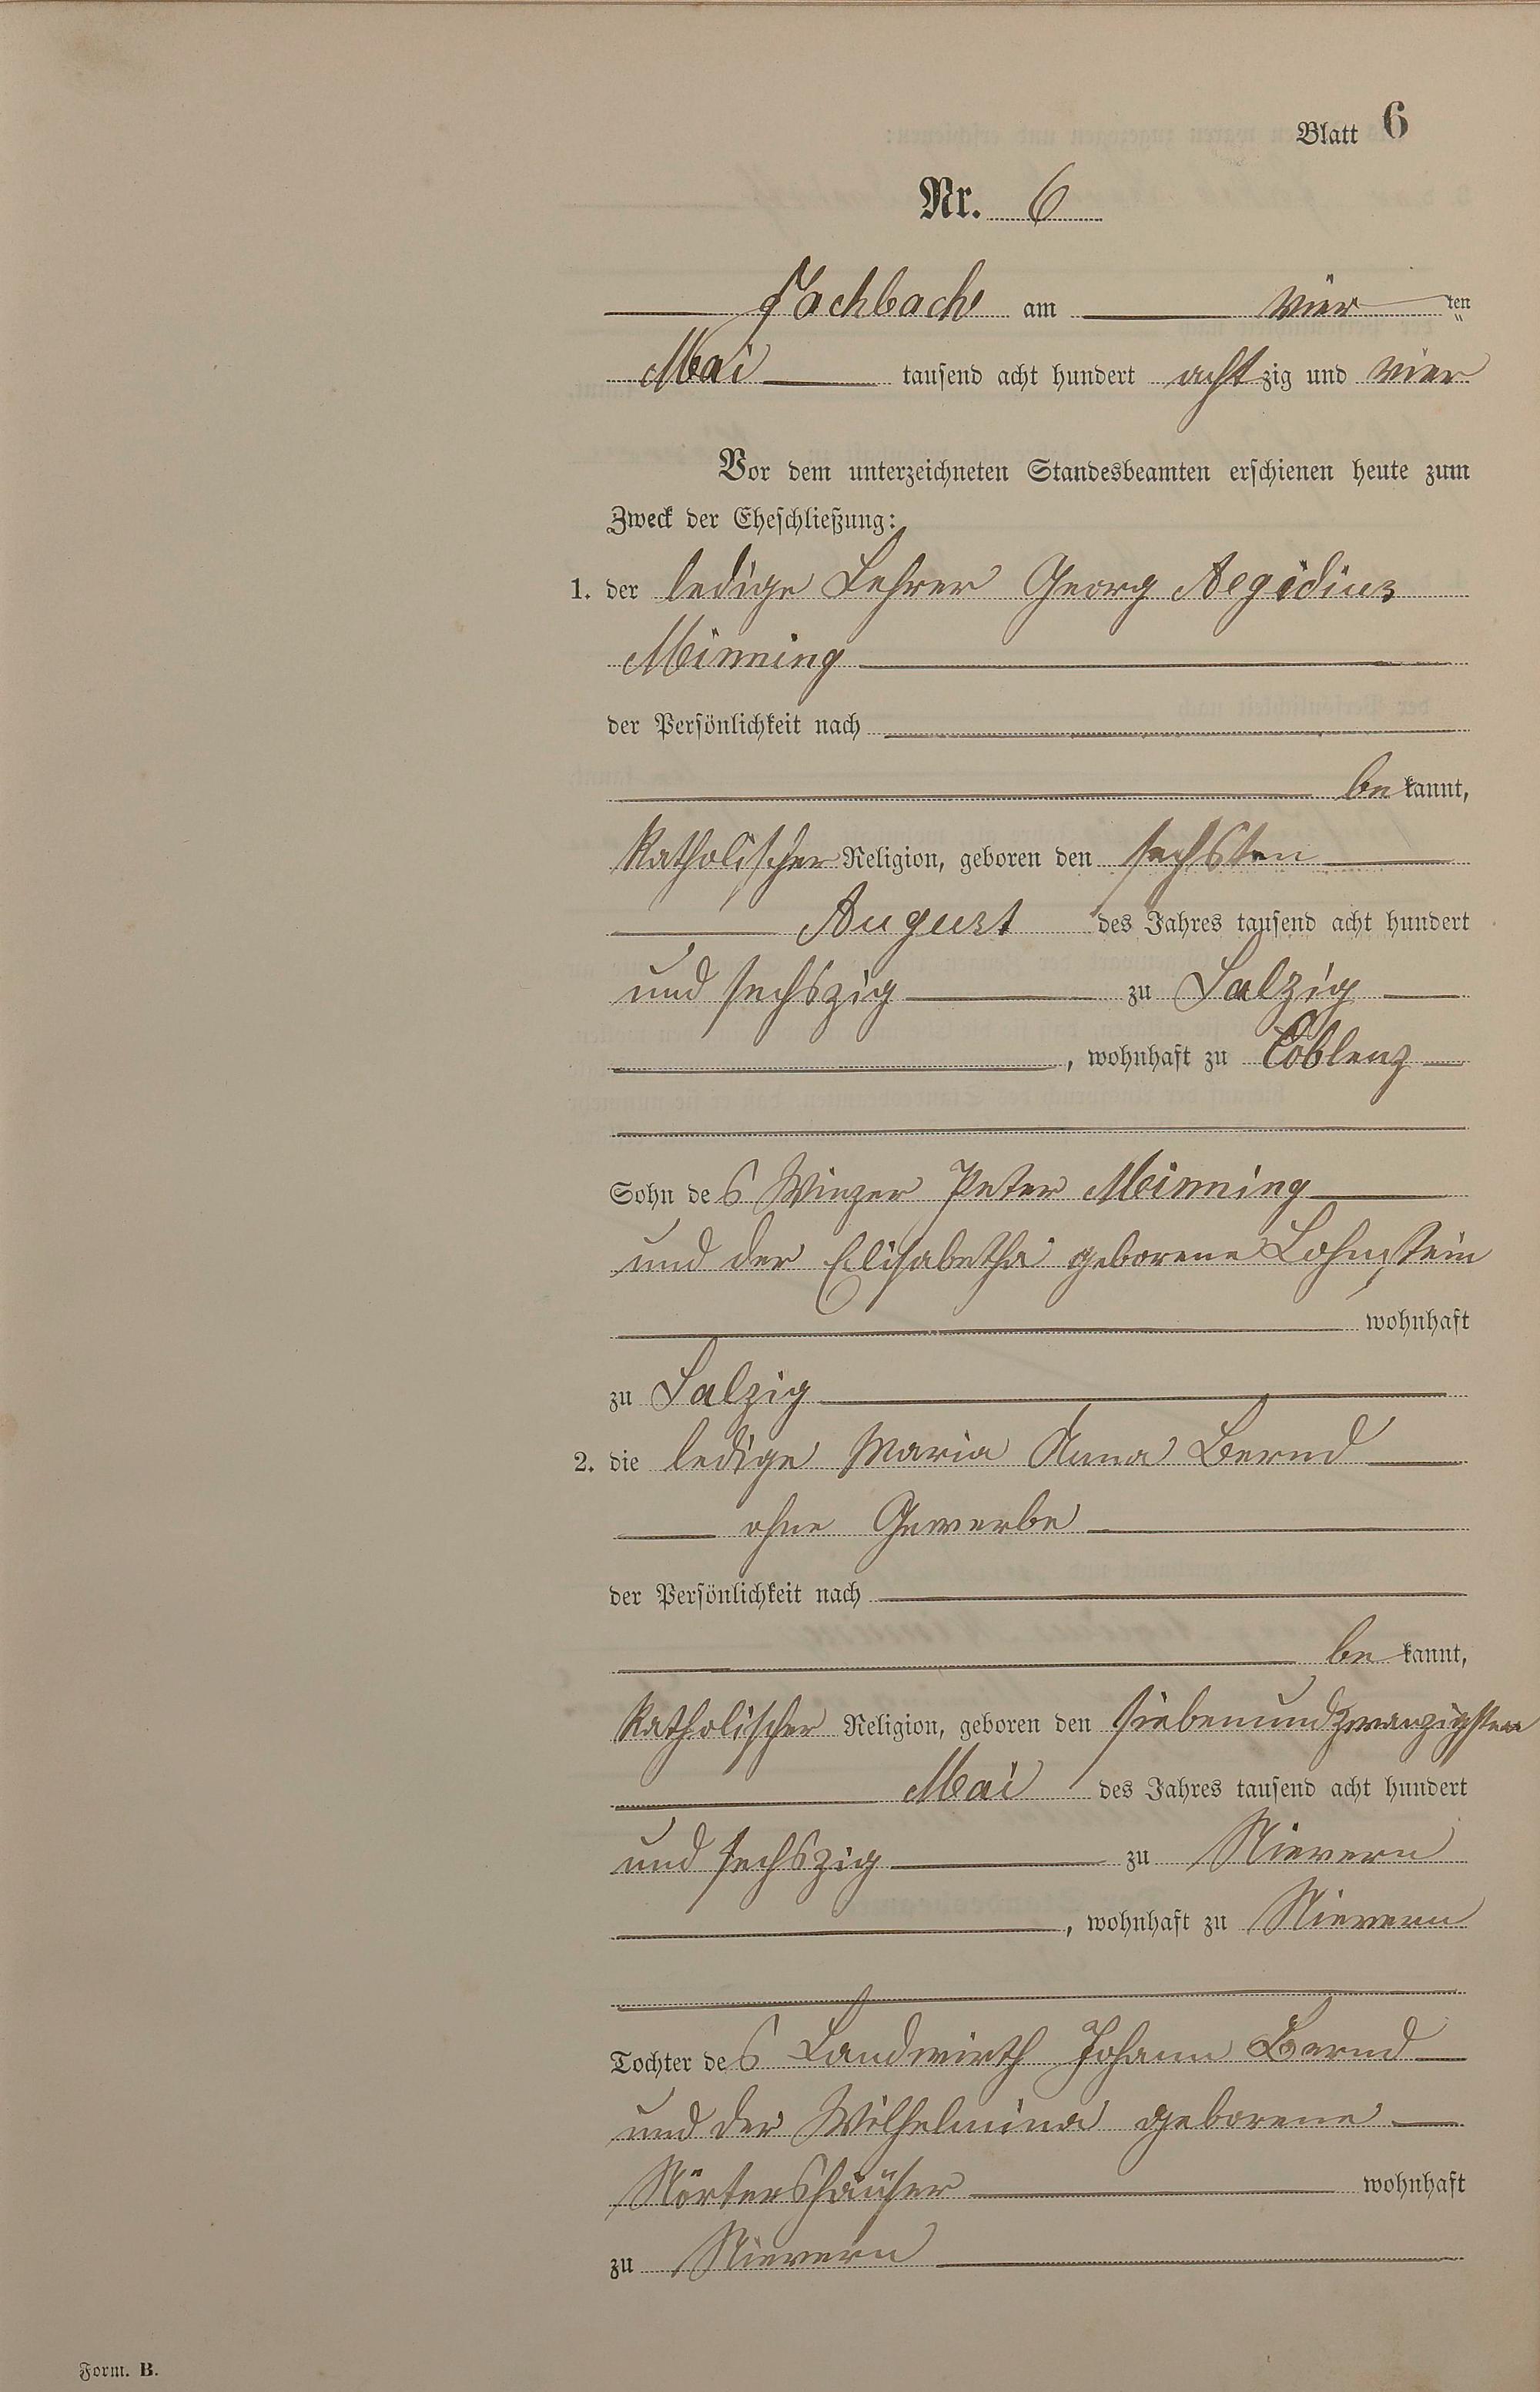 Blatt 6
Nr. 6
Fachbach am vier ten
Mai tausend acht hundert achtzig und vier
Vor dem unterzeichneten Standesbeamten erschienen heute zum
Zweck der Eheschließung:
1. der ledige Lehrer Georg Aegidius
Minning
der Persönlichkeit nach
be kannt,
katholischer Religion, geboren den sechsten
August des Jahres tausend acht hundert
und sechszig zu Salzig
, wohnhaft zu Coblenz
Sohn des Winzer Peter Minning
und der Elisabetha geborene Lohnstein
wohnhaft
zu Salzig
2. die ledige Maria Anna Bernd
ohne Gewerbe
der Persönlichkeit nach
be kannt,
katholischer Religion, geboren den siebenundzwanzigsten
Mai des Jahres tausend acht hundert
und sechszig zu Nievern
, wohnhaft zu Nievern
Tochter des Landwirth Johann Bernd
und der Wilhelmina geborene
Nörtershäuser wohnhaft
zu Nievern
Form. B.